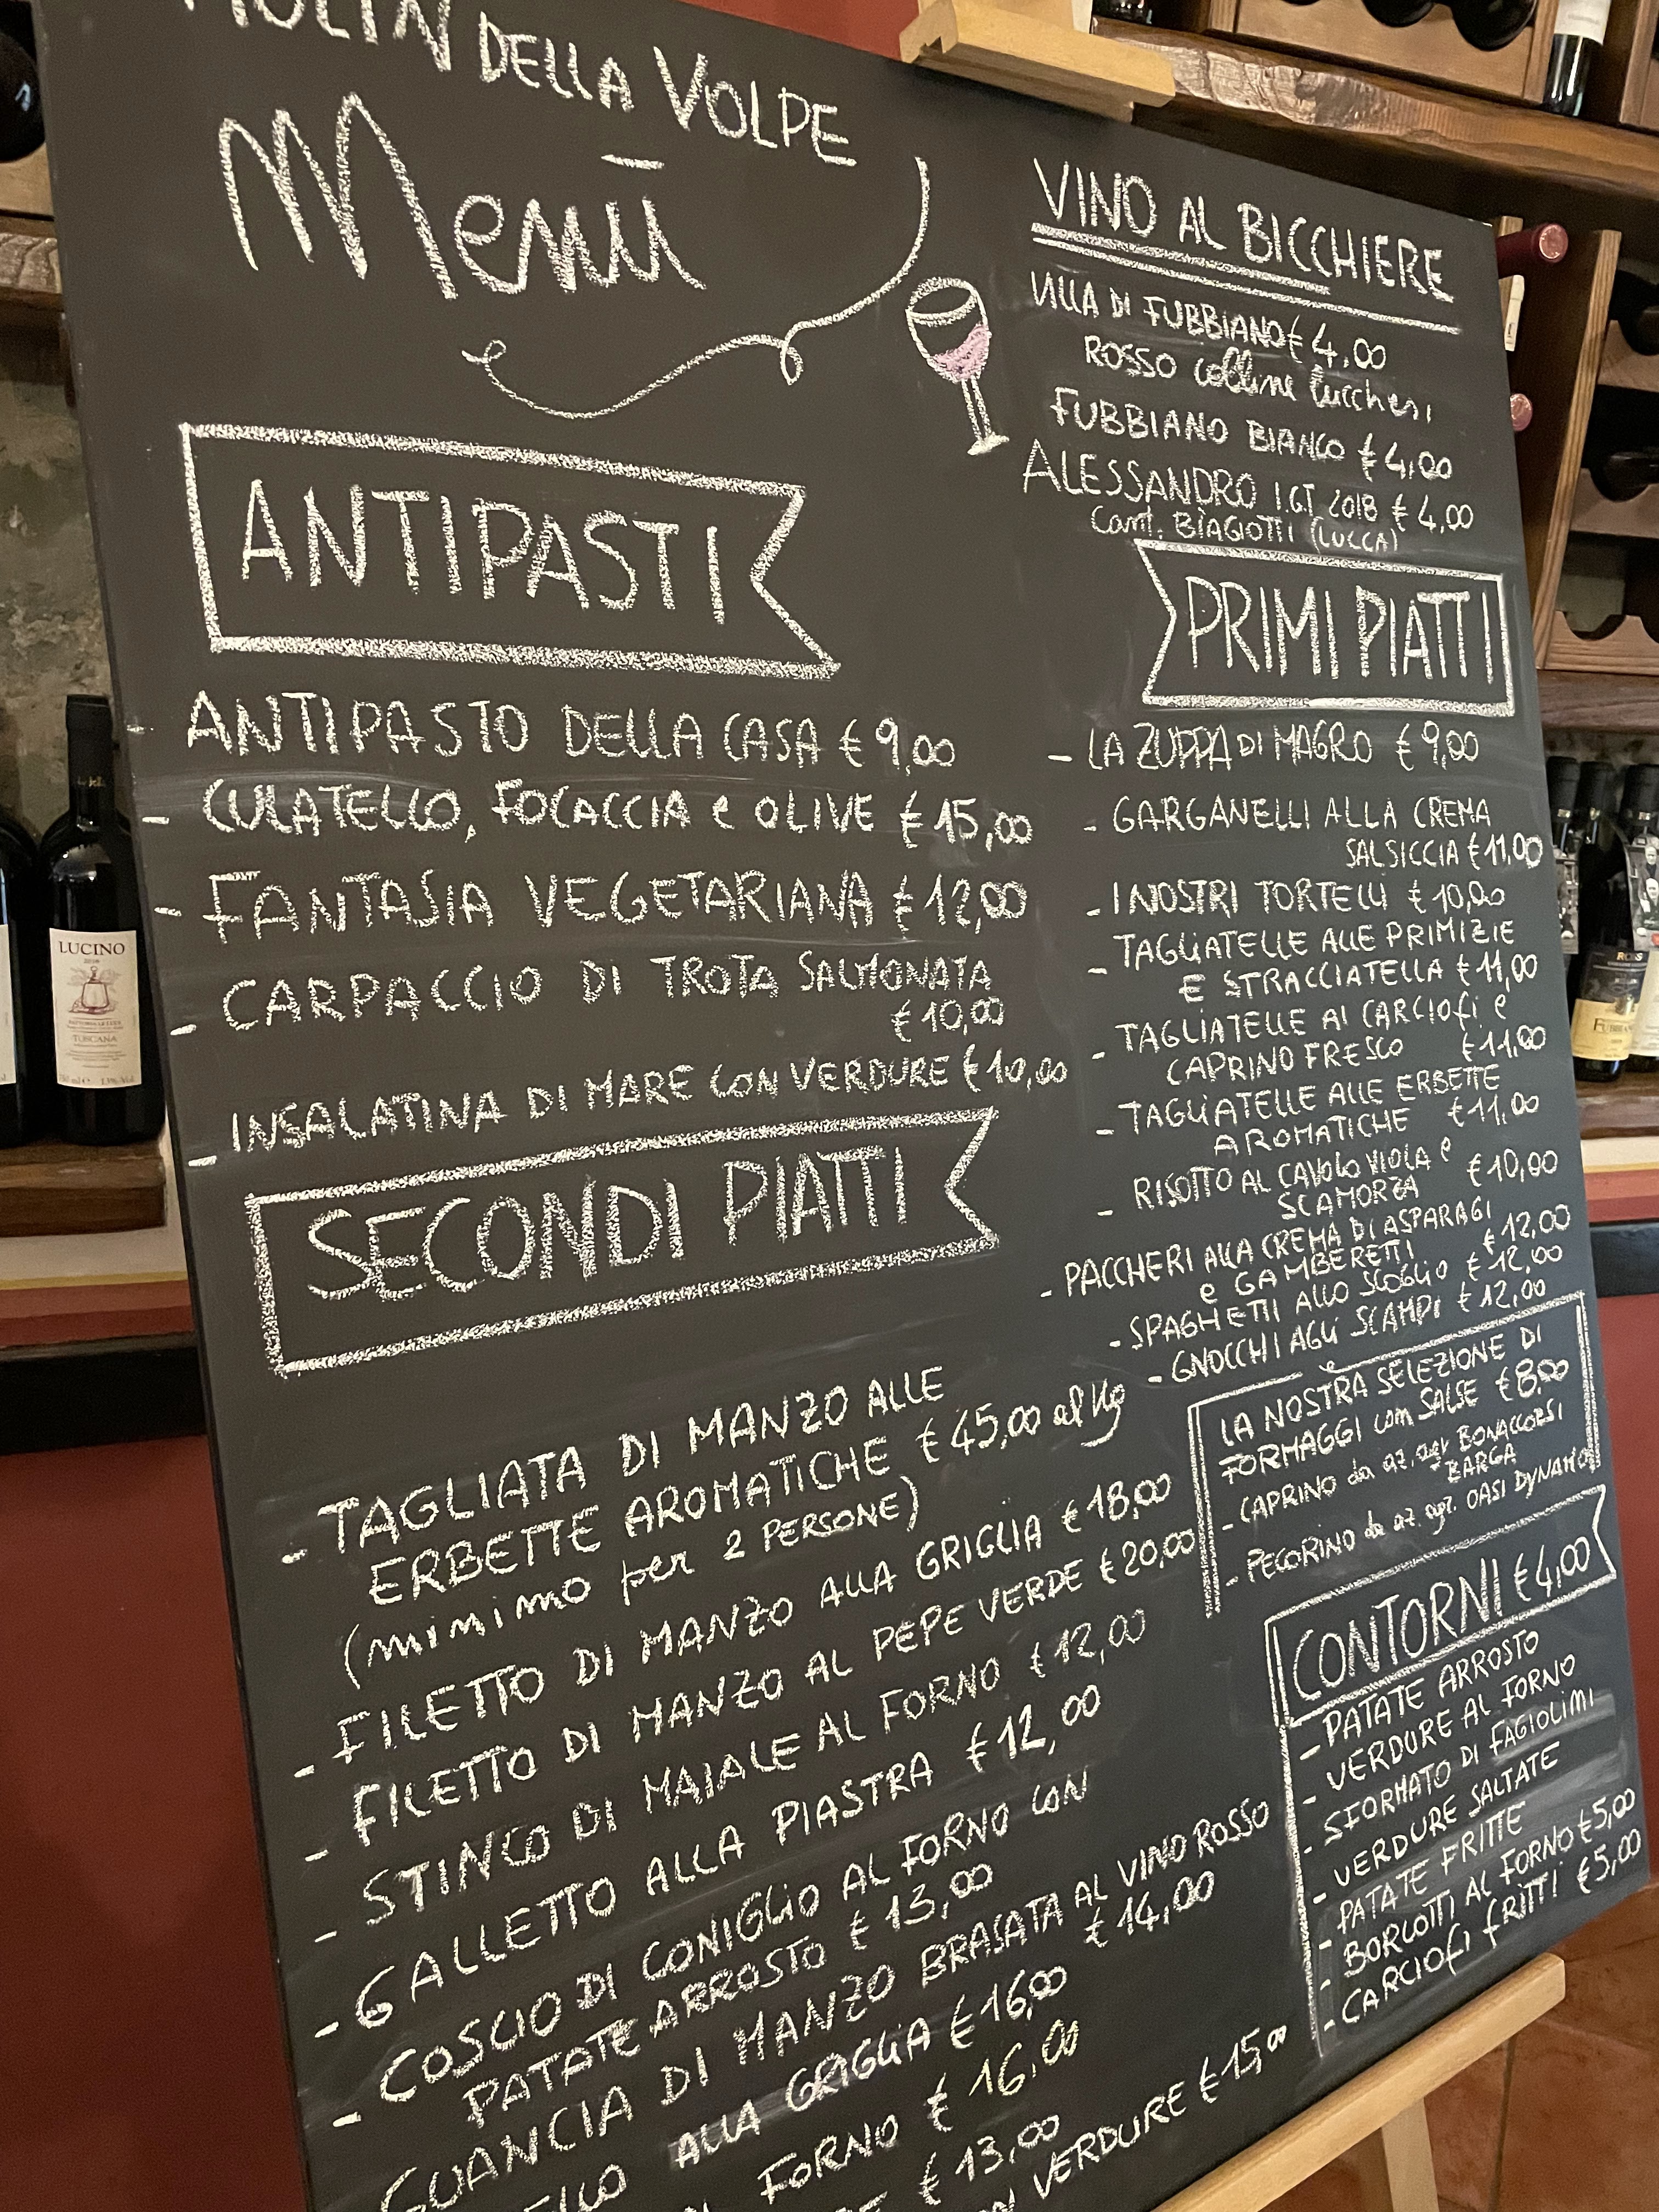 DELLA VOLPE
Menù
ANTIPASTI
- ANTIPASTO DELLA CASA € 9,00
- CULATELLO, FOCACCIA e OLIVE € 15,00
- FANTASIA VEGETARIANA € 12,00
- CARPACCIO DI TROTA SALMONATA
€ 10,00
- INSALATINA DI MARE CON VERDURE € 10,00
SECONDI PIATTI
- TAGLIATA DI MANZO ALLE
ERBETTE AROMATICHE € 45,00 al Kg
(minimo per 2 PERSONE)
- FILETTO DI MANZO ALLA GRIGLIA € 18,00
- FILETTO DI MANZO AL PEPE VERDE € 20,00
- STINCO DI MAIALE AL FORNO € 12,00
- GALLETTO ALLA PIASTRA € 12,00
- COSCIO DI CONIGLIO AL FORNO CON
PATATE ARROSTO € 13,00
GUANCIA DI MANZO BRASATA AL VINO ROSSO
€ 14,00
ALLA GRIGLIA € 16,00
FORNO € 16,00
€ 13,00
VERDURE € 15,00
VINO AL BICCHIERE
VILLA DI FUBBIANO € 4,00
ROSSO colline lucchesi
FUBBIANO BIANCO € 4,00
ALESSANDRO I.G.T. 2018 € 4,00
Cant. BIAGIOTTI (LUCCA)
PRIMI PIATTI
- LA ZUPPA DI MAGRO € 9,00
- GARGANELLI ALLA CREMA
SALSICCIA € 11,00
- I NOSTRI TORTELLI € 10,00
- TAGLIATELLE ALLE PRIMIZIE
E STRACCIATELLA € 11,00
- TAGLIATELLE AI CARCIOFI e
CAPRINO FRESCO € 11,00
- TAGLIATELLE ALLE ERBETTE
AROMATICHE € 11,00
- RISOTTO AL CAVOLO VIOLA e
SCAMORZA € 10,00
- PACCHERI ALLA CREMA DI ASPARAGI
e GAMBERETTI € 12,00
- SPAGHETTI ALLO SCOGLIO € 12,00
- GNOCCHI AGLI SCAMPI € 12,00
LA NOSTRA SELEZIONE DI
FORMAGGI con SALSE € 8,00
- CAPRINO da az. agr BONACCORSI
BARGA
- PECORINO da az. agr. OASI DYNAMO
CONTORNI € 4,00
- PATATE ARROSTO
- VERDURE AL FORNO
- SFORMATO DI FAGIOLINI
- VERDURE SALTATE
- PATATE FRITTE
- BORLOTTI AL FORNO € 5,00
- CARCIOFI FRITTI € 5,00
LUCINO
TOSCANA